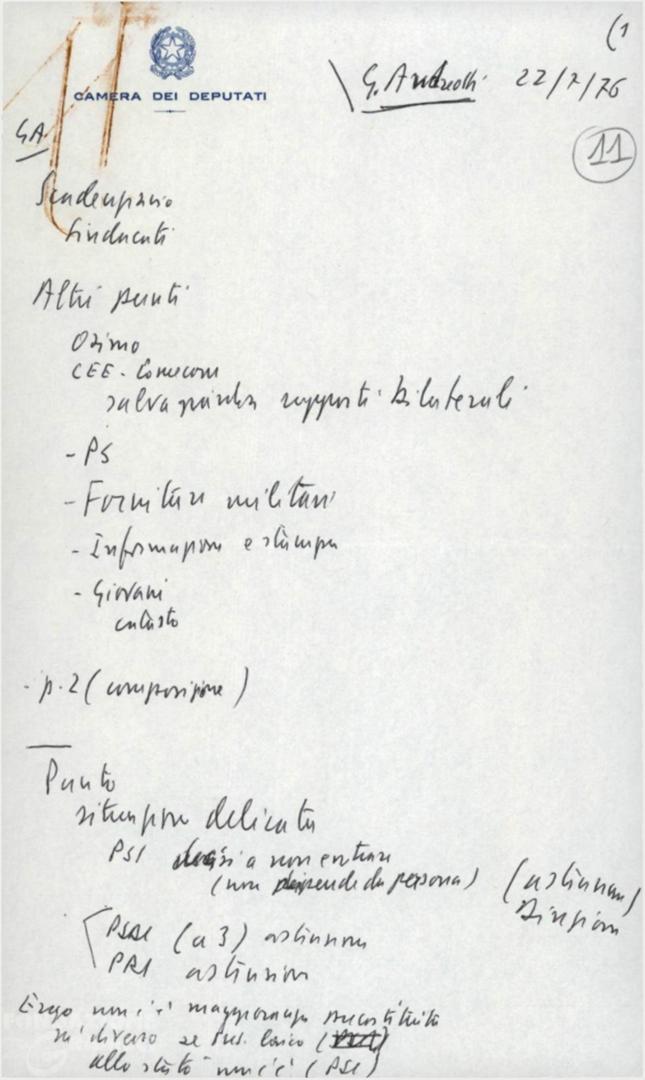 (1
CAMERA DEI DEPUTATI
G. Andreotti 22/7/76
GA
11
Scadenzario
Sindacati
Altri punti
Osimo
CEE - Comecon
salvaguardia rapporti bilaterali
- PS
- Forniture militari
- Informazione e stampa
- Giovani
catasto
- p. 2 (composizione)
Punto
situazione delicata
PSI decisi a non entrare
(non dipende da persona) (astensione)
Direzione
PSDI (a 3) astensione
PRI astensione
Ergo non c'è maggioranza precostituita
se laico
allo stato non c'è (PSI)